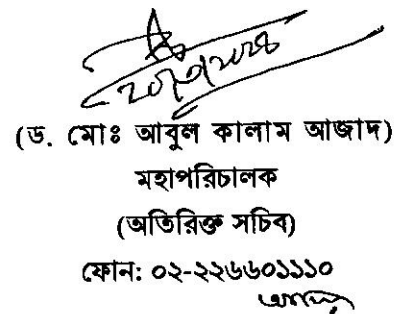 (ড. মোঃ আবুল কালাম আজাদ)
মহাপরিচালক
(অতিরিক্ত সচিব)
ফোন: ০২-২২৬৬০১১১০